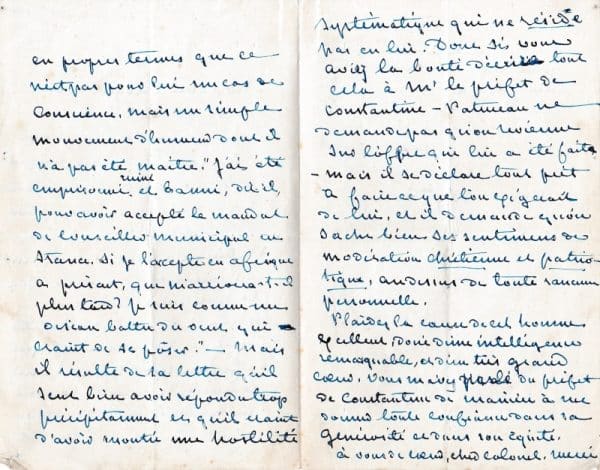 en propres termes que ce
n'est pas pour lui un cas de
conscience, mais un simple
mouvement d'humeur dont il
n'a pas été maître. "J'ai été
emprisonné, ruiné et banni, dit-il,
pour avoir accepté le mandat
de conseiller municipal en
France. Si je l'accepte en afrique
à présent, que m'arrivera-t-il
plus tard? Je suis comme un
oiseau battu du vent, qui
craint de se poser." — Mais
il résulte de sa lettre qu'il
sent bien avoir répondu trop
précipitamment et qu'il craint
d'avoir montré une hostilité
systématique qui ne réside
pas en lui. Donc si vous
aviez la bonté d'écrire tout
cela à Mr le préfet de
Constantine — Patureau ne
demande pas qu'on revienne
sur l'offre qui lui a été faite
— mais il se déclare tout prêt
à faire ce que l'on exigerait
de lui, et il demande qu'on
sache bien ses sentimens de
modération chrétienne et patrio-
tique, au dessus de toute rancune
personnelle.
Plaidez la cause de cet homme
excellent, doué d'une intelligence
remarquable, et d'un très grand
cœur. Vous m'avez parlé du préfet
de Constantine de manière à me
donner toute confiance dans sa
générosité et dans son équité.
à vous de cœur, cher colonel. merci